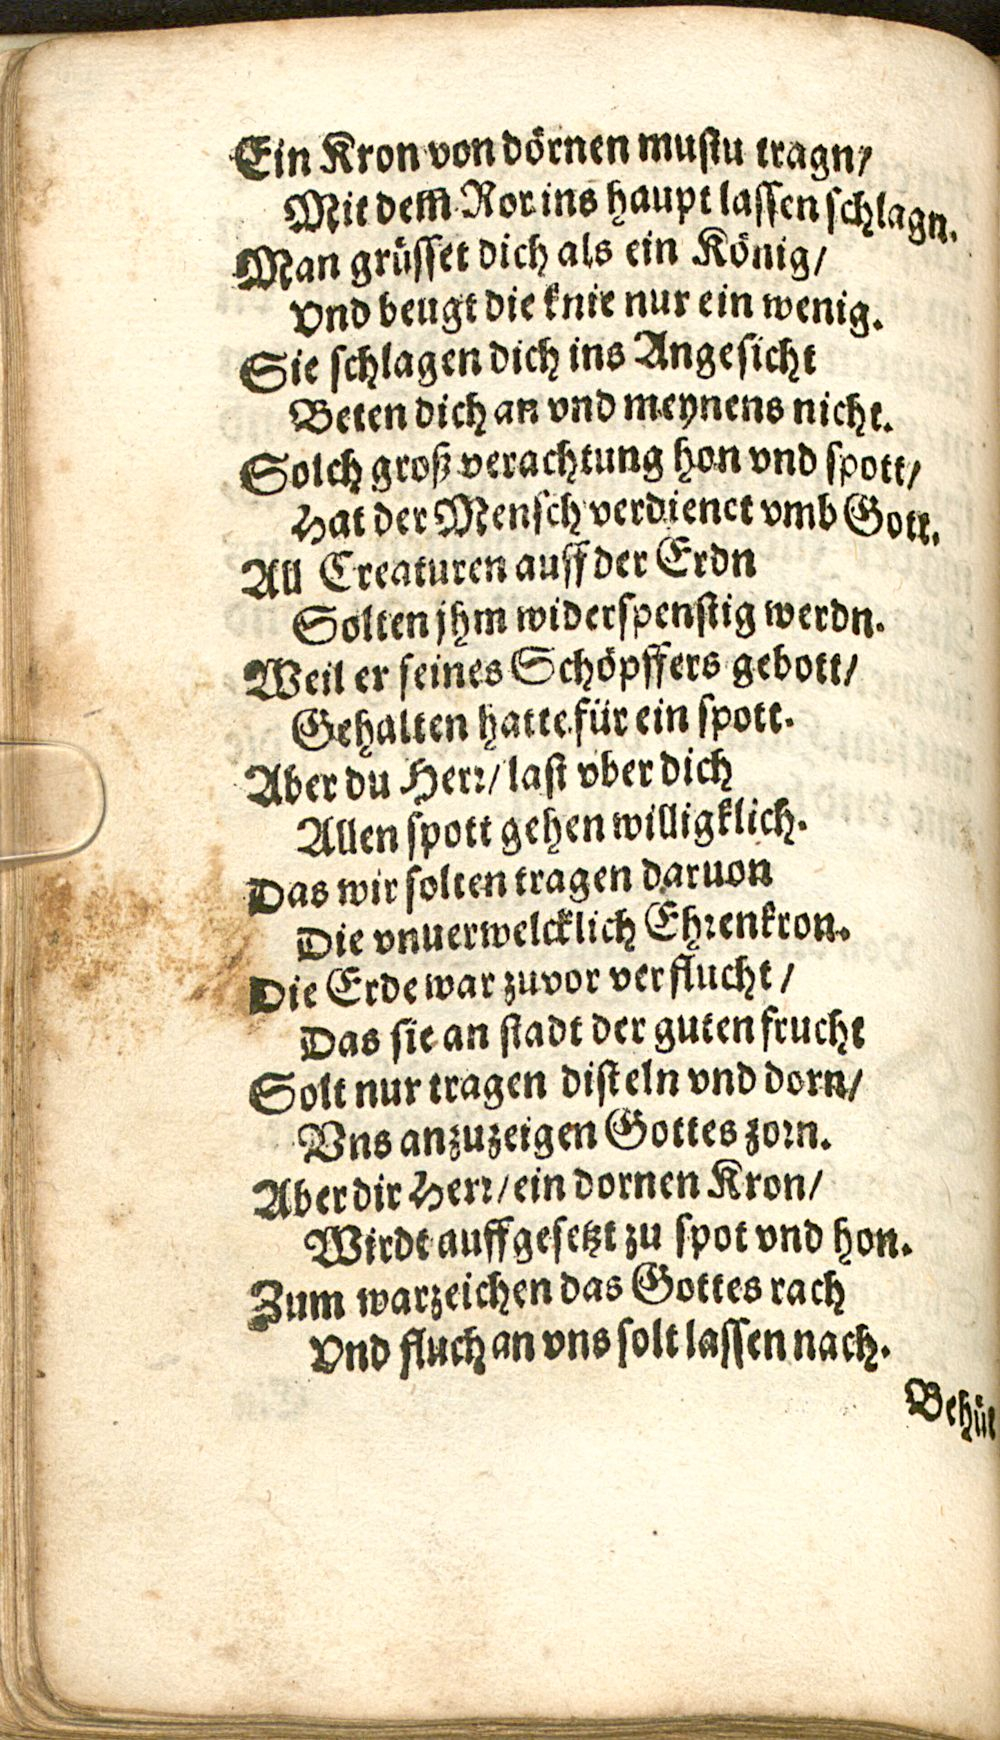 Ein Kron von dörnen mustu tragn/
Mit dem̃ Ror ins haupt lassen schlagn.
Man grüsset dich als ein König/
Vnd beugt die knie nur ein wenig.
Sie schlagen dich ins Angesicht
Beten dich an vnd meynens nicht.
Solch groß verachtung hon vnd spott/
Hat der Mensch verdienct vmb Gott.
All Creaturen auff der Erdn
Solten jhm widerspenstig werdn.
Weil er seines Schöpffers gebott/
Gehalten hatte für ein spott.
Aber du Herr/ last vber dich
Allen spott gehen willigklich.
Das wir solten tragen daruon
Die vnuerwelcklich Ehrenkron.
Die Erde war zuvor verflucht/
Das sie an stadt der guten frucht
Solt nur tragen disteln vnd dorn/
Vns anzuzeigen Gottes zorn.
Aber dir Herr/ ein dornen Kron/
Wirdt auffgesetzt zu spot vnd hon.
Zum warzeichen das Gottes rach
Vnd fluch an vns solt lassen nach.
Behüt